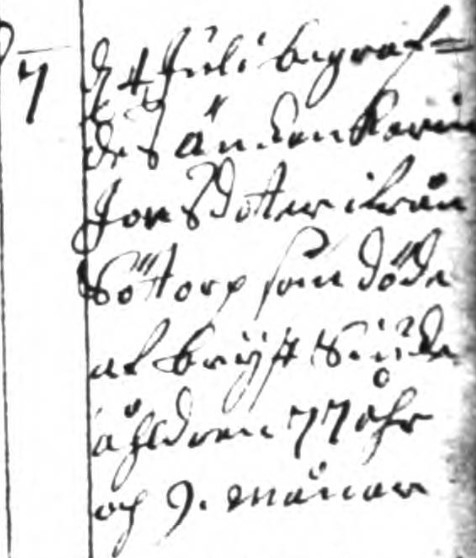 7 d 4 Juli begraf=
des änckan Karin
Jonsdotter ifrån
Söttorp som döde
af bryst Siuka
åhldren 77 åhr
och 9. månar